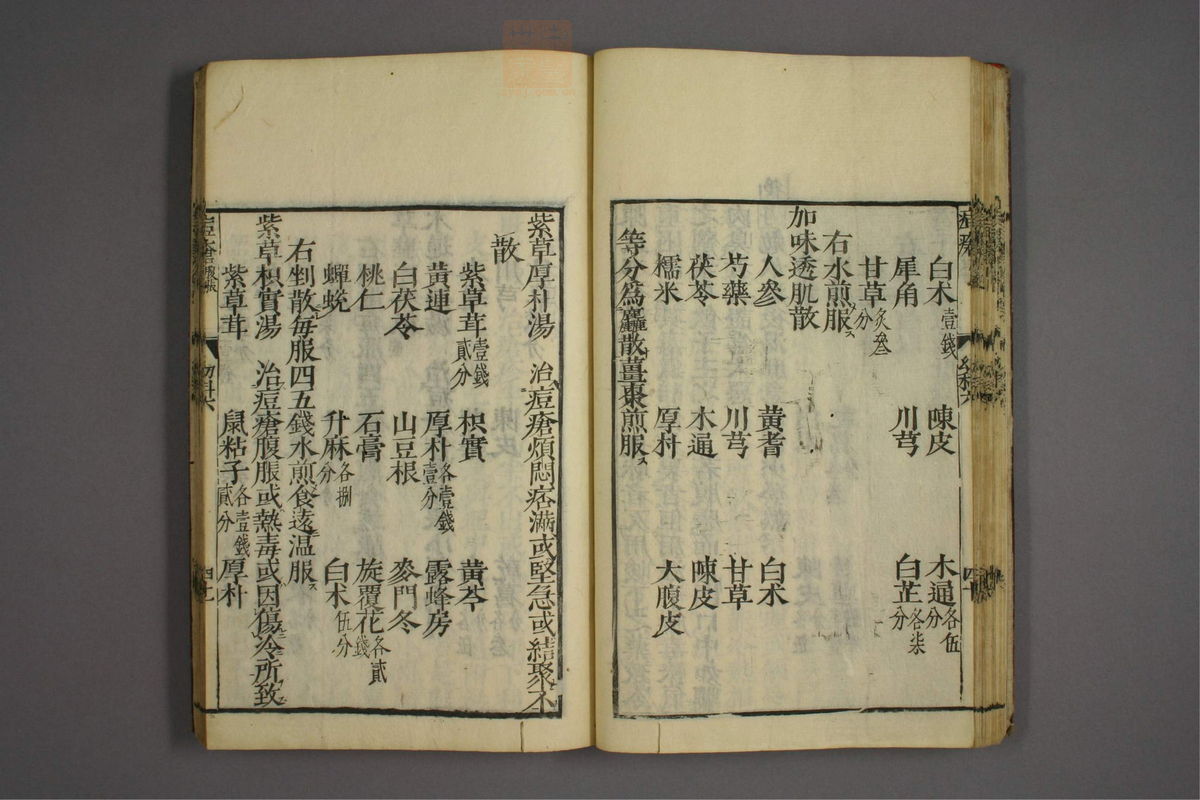 白朮壹錢 陳皮 木通各伍分
犀角 川芎 白芷各柒分
甘草炙叄分
右水煎服ス
加味透肌散
人參 黃耆 白朮
芍藥 川芎 甘草
茯苓 木通 陳皮
糯米 厚朴 大腹皮
等分爲麤散薑棗煎服ス
紫草厚朴湯 治痘瘡煩悶痞滿或堅急或結聚不
散
紫草茸壹錢貳分 枳實 黃芩
黃連 厚朴各壹錢壹分 露蜂房
白茯苓 山豆根 麥門冬
桃仁 石膏 旋覆花各貳錢
蟬蛻 升麻各捌分 白朮伍分
右剉散每服四五錢水煎食遠温服ス
紫草枳實湯 治痘瘡腹脹或熱毒或因傷冷所致
紫草茸 鼠粘子各壹錢貳分 厚朴